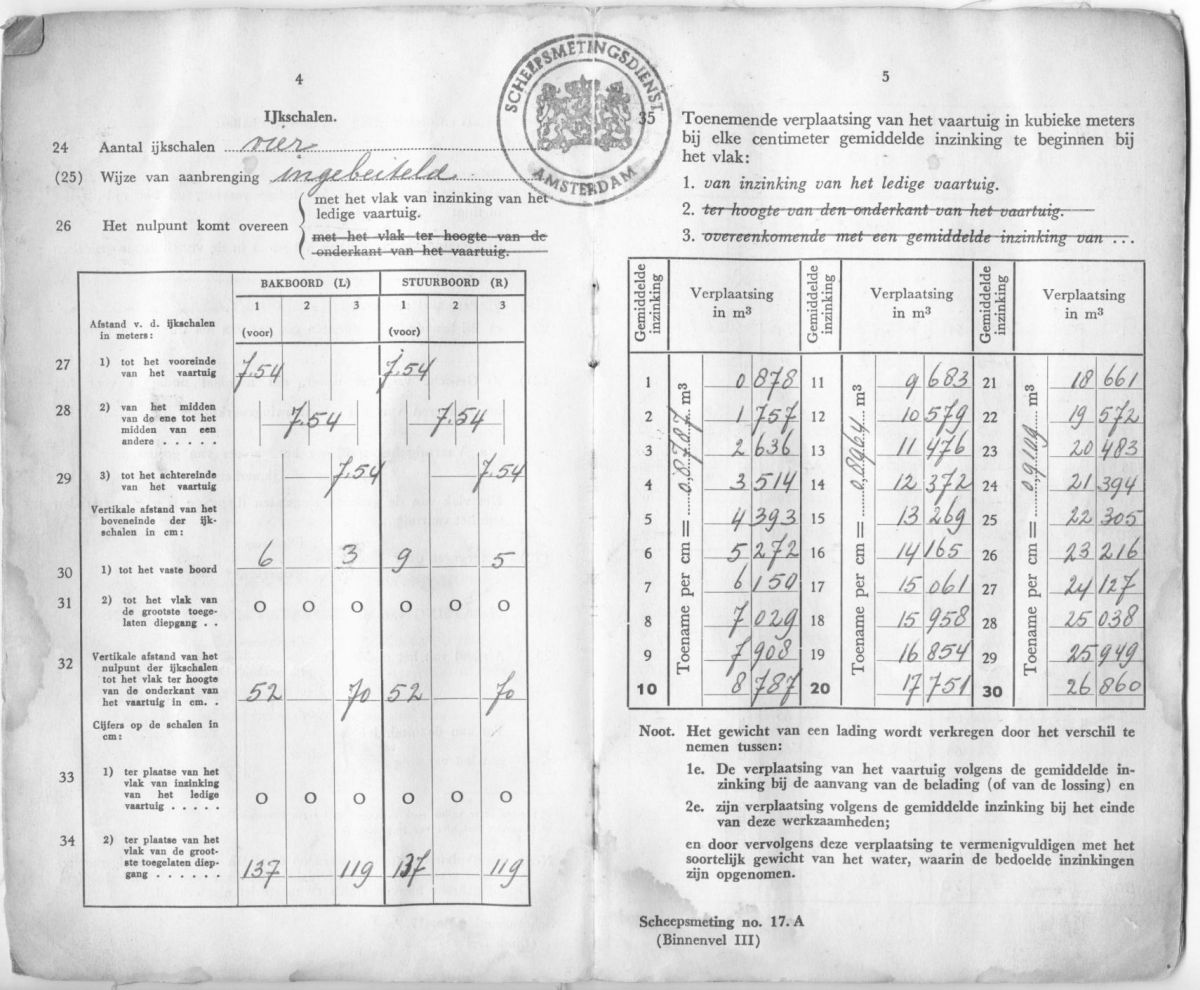 4
IJkschalen.
24 Aantal ijkschalen vier
(25) Wijze van aanbrenging ingebeiteld
26 Het nulpunt komt overeen
met het vlak van inzinking van het
ledige vaartuig.
met het vlak ter hoogte van de
onderkant van het vaartuig.
BAKBOORD (L) STUURBOORD (R)
1 2 3 1 2 3
(voor) (voor)
Afstand v. d. ijkschalen
in meters:
27 1) tot het vooreinde
van het vaartuig 7.54 7.54
28 2) van het midden
van de ene tot het
midden van een
andere . . . . . 7.54 7.54
29 3) tot het achtereinde
van het vaartuig 7.54 7.54
Vertikale afstand van het
boveneinde der ijk-
schalen in cm:
30 1) tot het vaste boord 6 3 9 5
31 2) tot het vlak van
de grootste toege-
laten diepgang . . O O O O O O
32 Vertikale afstand van het
nulpunt der ijkschalen
tot het vlak ter hoogte
van de onderkant van
het vaartuig in cm. . 52 70 52 70
Cijfers op de schalen in
cm:
33 1) ter plaatse van het
vlak van inzinking
van het ledige
vaartuig . . . . . O O O O O O
34 2) ter plaatse van het
vlak van de groot-
ste toegelaten diep-
gang . . . . . . 137 119 137 119
SCHEEPSMETINGSDIENST
AMSTERDAM
5
35 Toenemende verplaatsing van het vaartuig in kubieke meters
bij elke centimeter gemiddelde inzinking te beginnen bij
het vlak:
1. van inzinking van het ledige vaartuig.
2. ter hoogte van den onderkant van het vaartuig.
3. overeenkomende met een gemiddelde inzinking van ...
Gemiddelde inzinking Verplaatsing in m³ Gemiddelde inzinking Verplaatsing in m³ Gemiddelde inzinking Verplaatsing in m³
Toename per cm = 0,8787 m³
Toename per cm = 0,8964 m³
Toename per cm = 0,9109 m³
1 0 878 11 9 683 21 18 661
2 1 757 12 10 579 22 19 572
3 2 636 13 11 476 23 20 483
4 3 514 14 12 372 24 21 394
5 4 393 15 13 269 25 22 305
6 5 272 16 14 165 26 23 216
7 6 150 17 15 061 27 24 127
8 7 029 18 15 958 28 25 038
9 7 908 19 16 854 29 25 949
10 8 787 20 17 751 30 26 860
Noot. Het gewicht van een lading wordt verkregen door het verschil te
nemen tussen:
1e. De verplaatsing van het vaartuig volgens de gemiddelde in-
zinking bij de aanvang van de belading (of van de lossing) en
2e. zijn verplaatsing volgens de gemiddelde inzinking bij het einde
van deze werkzaamheden;
en door vervolgens deze verplaatsing te vermenigvuldigen met het
soortelijk gewicht van het water, waarin de bedoelde inzinkingen
zijn opgenomen.
Scheepsmeting no. 17. A
(Binnenvel III)